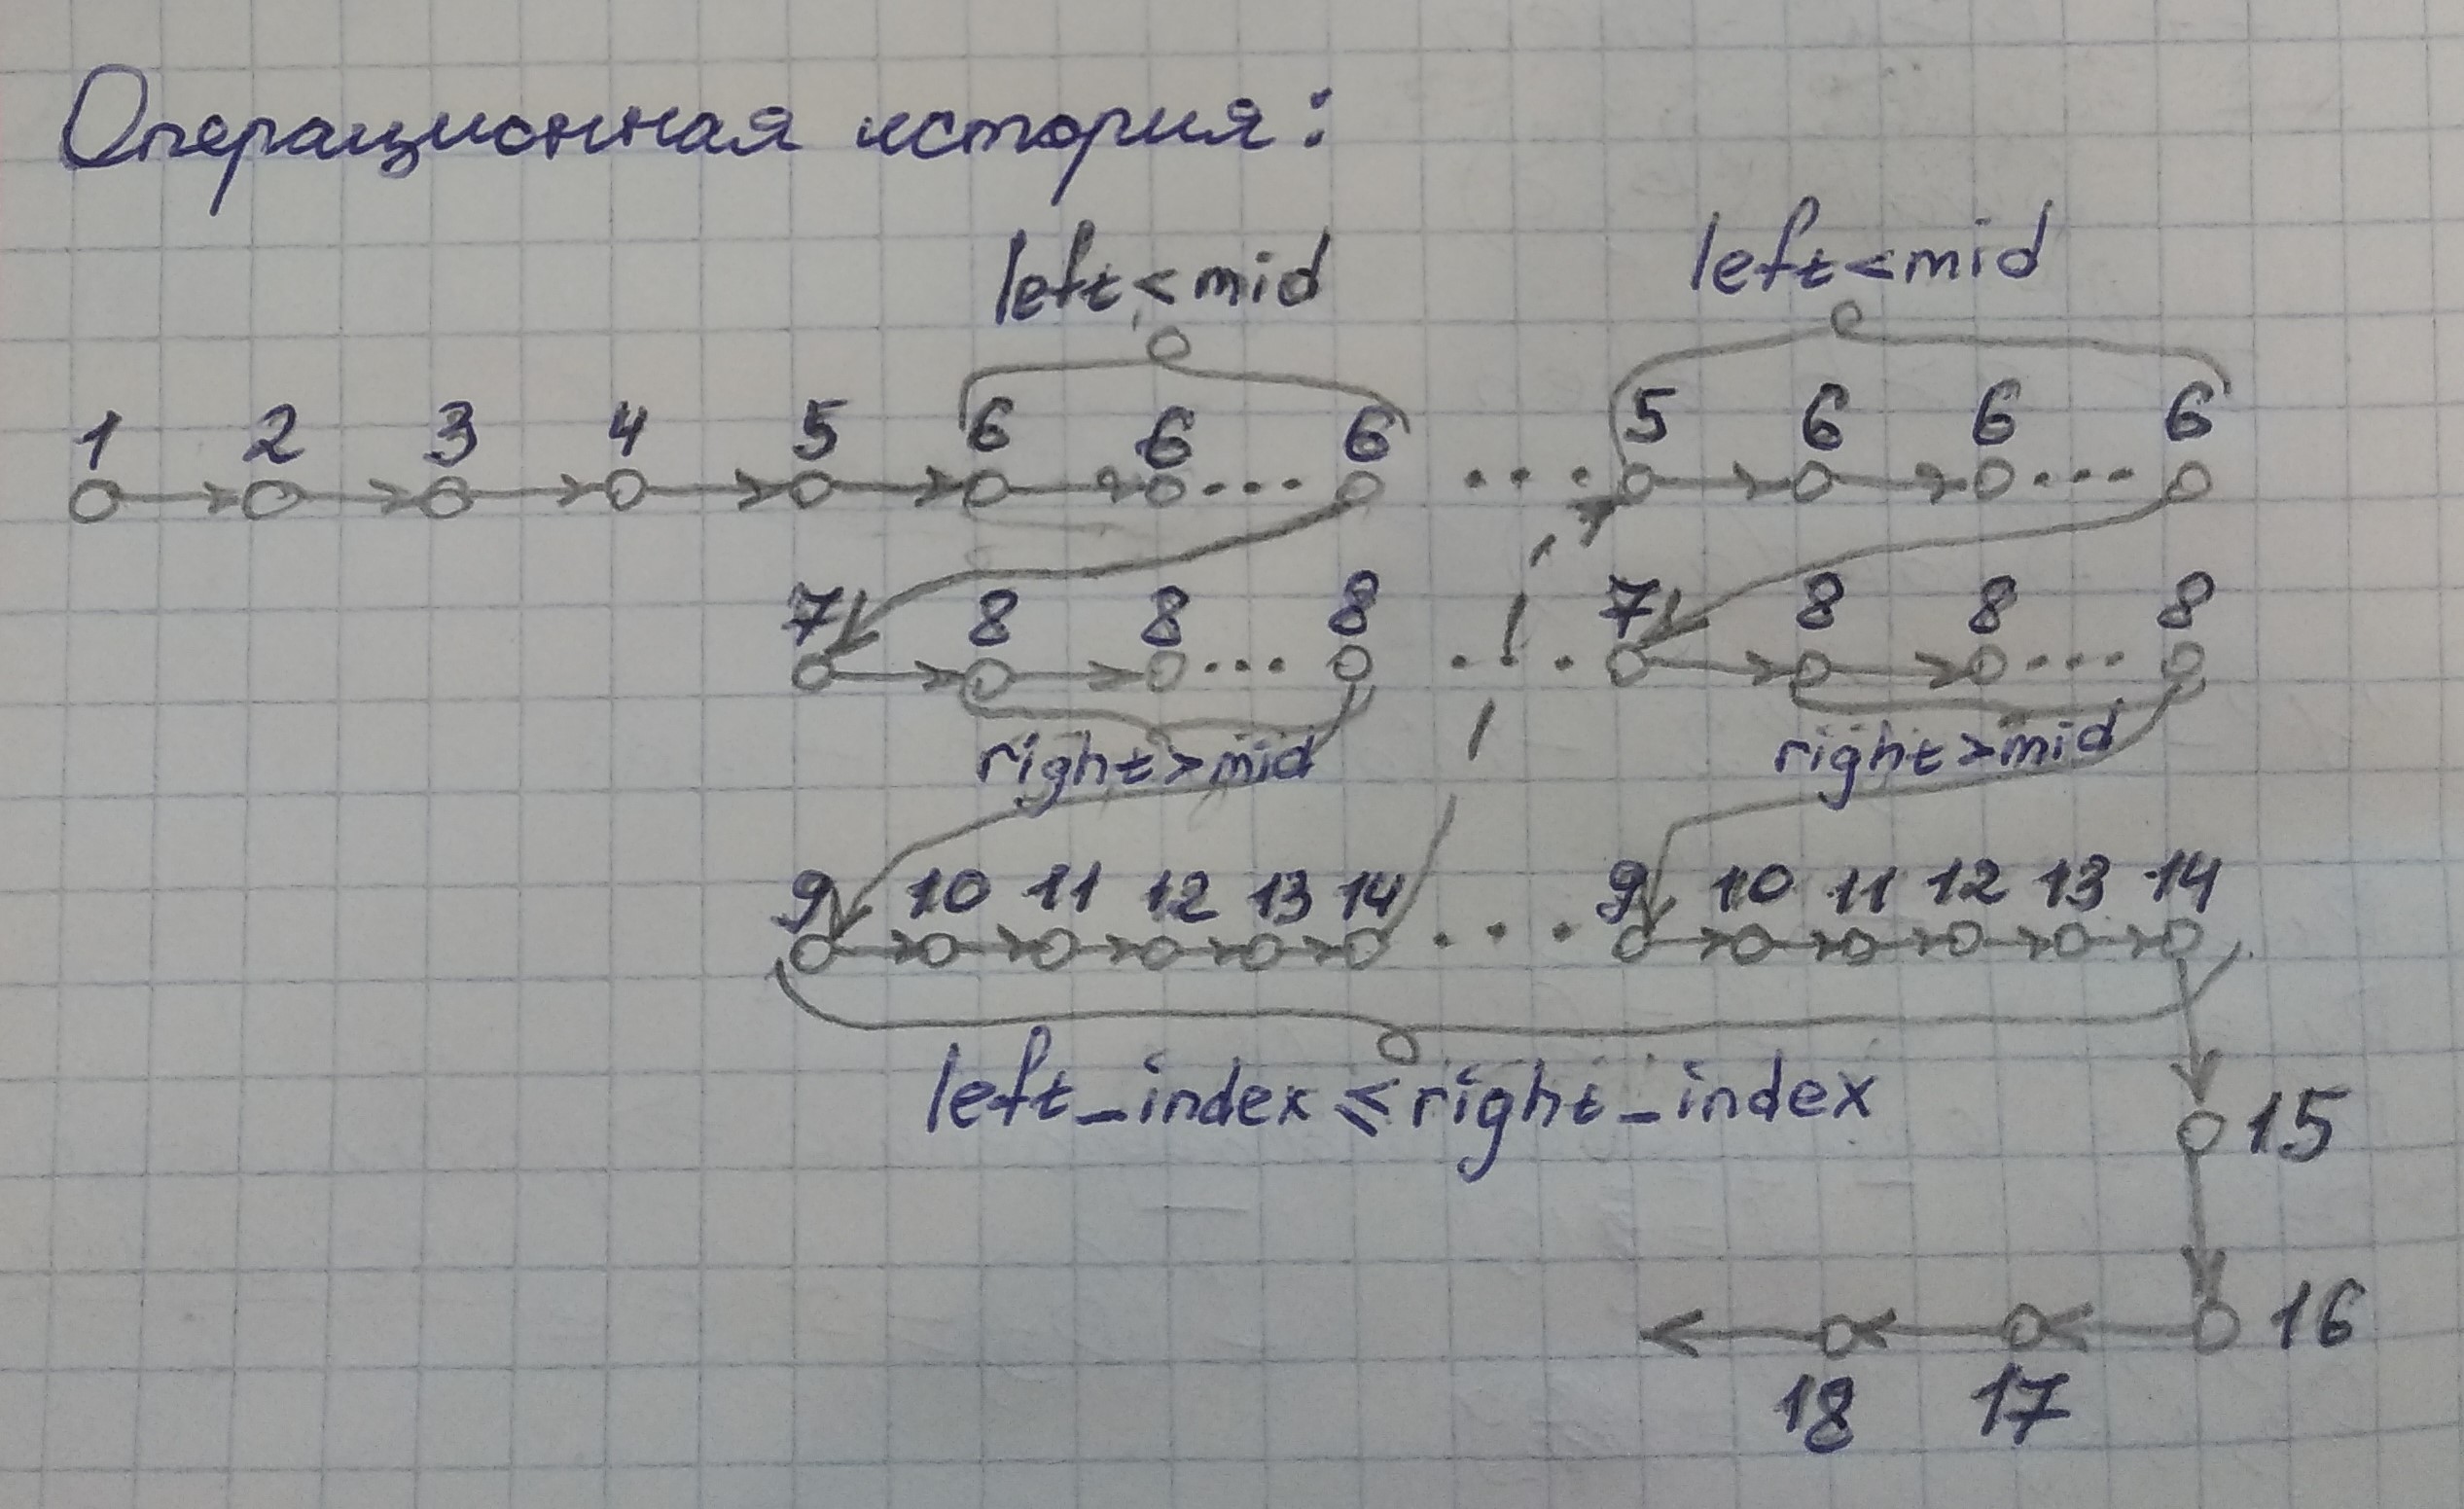 Операционная история:
left<mid left<mid
1 2 3 4 5 6 6 ... 6 ... 5 6 6 ... 6
7 8 8 ... 8 ... 7 8 8 ... 8
right>mid right>mid
9 10 11 12 13 14 ... 9 10 11 12 13 14
left_index ≤ right_index
15
16
18 17